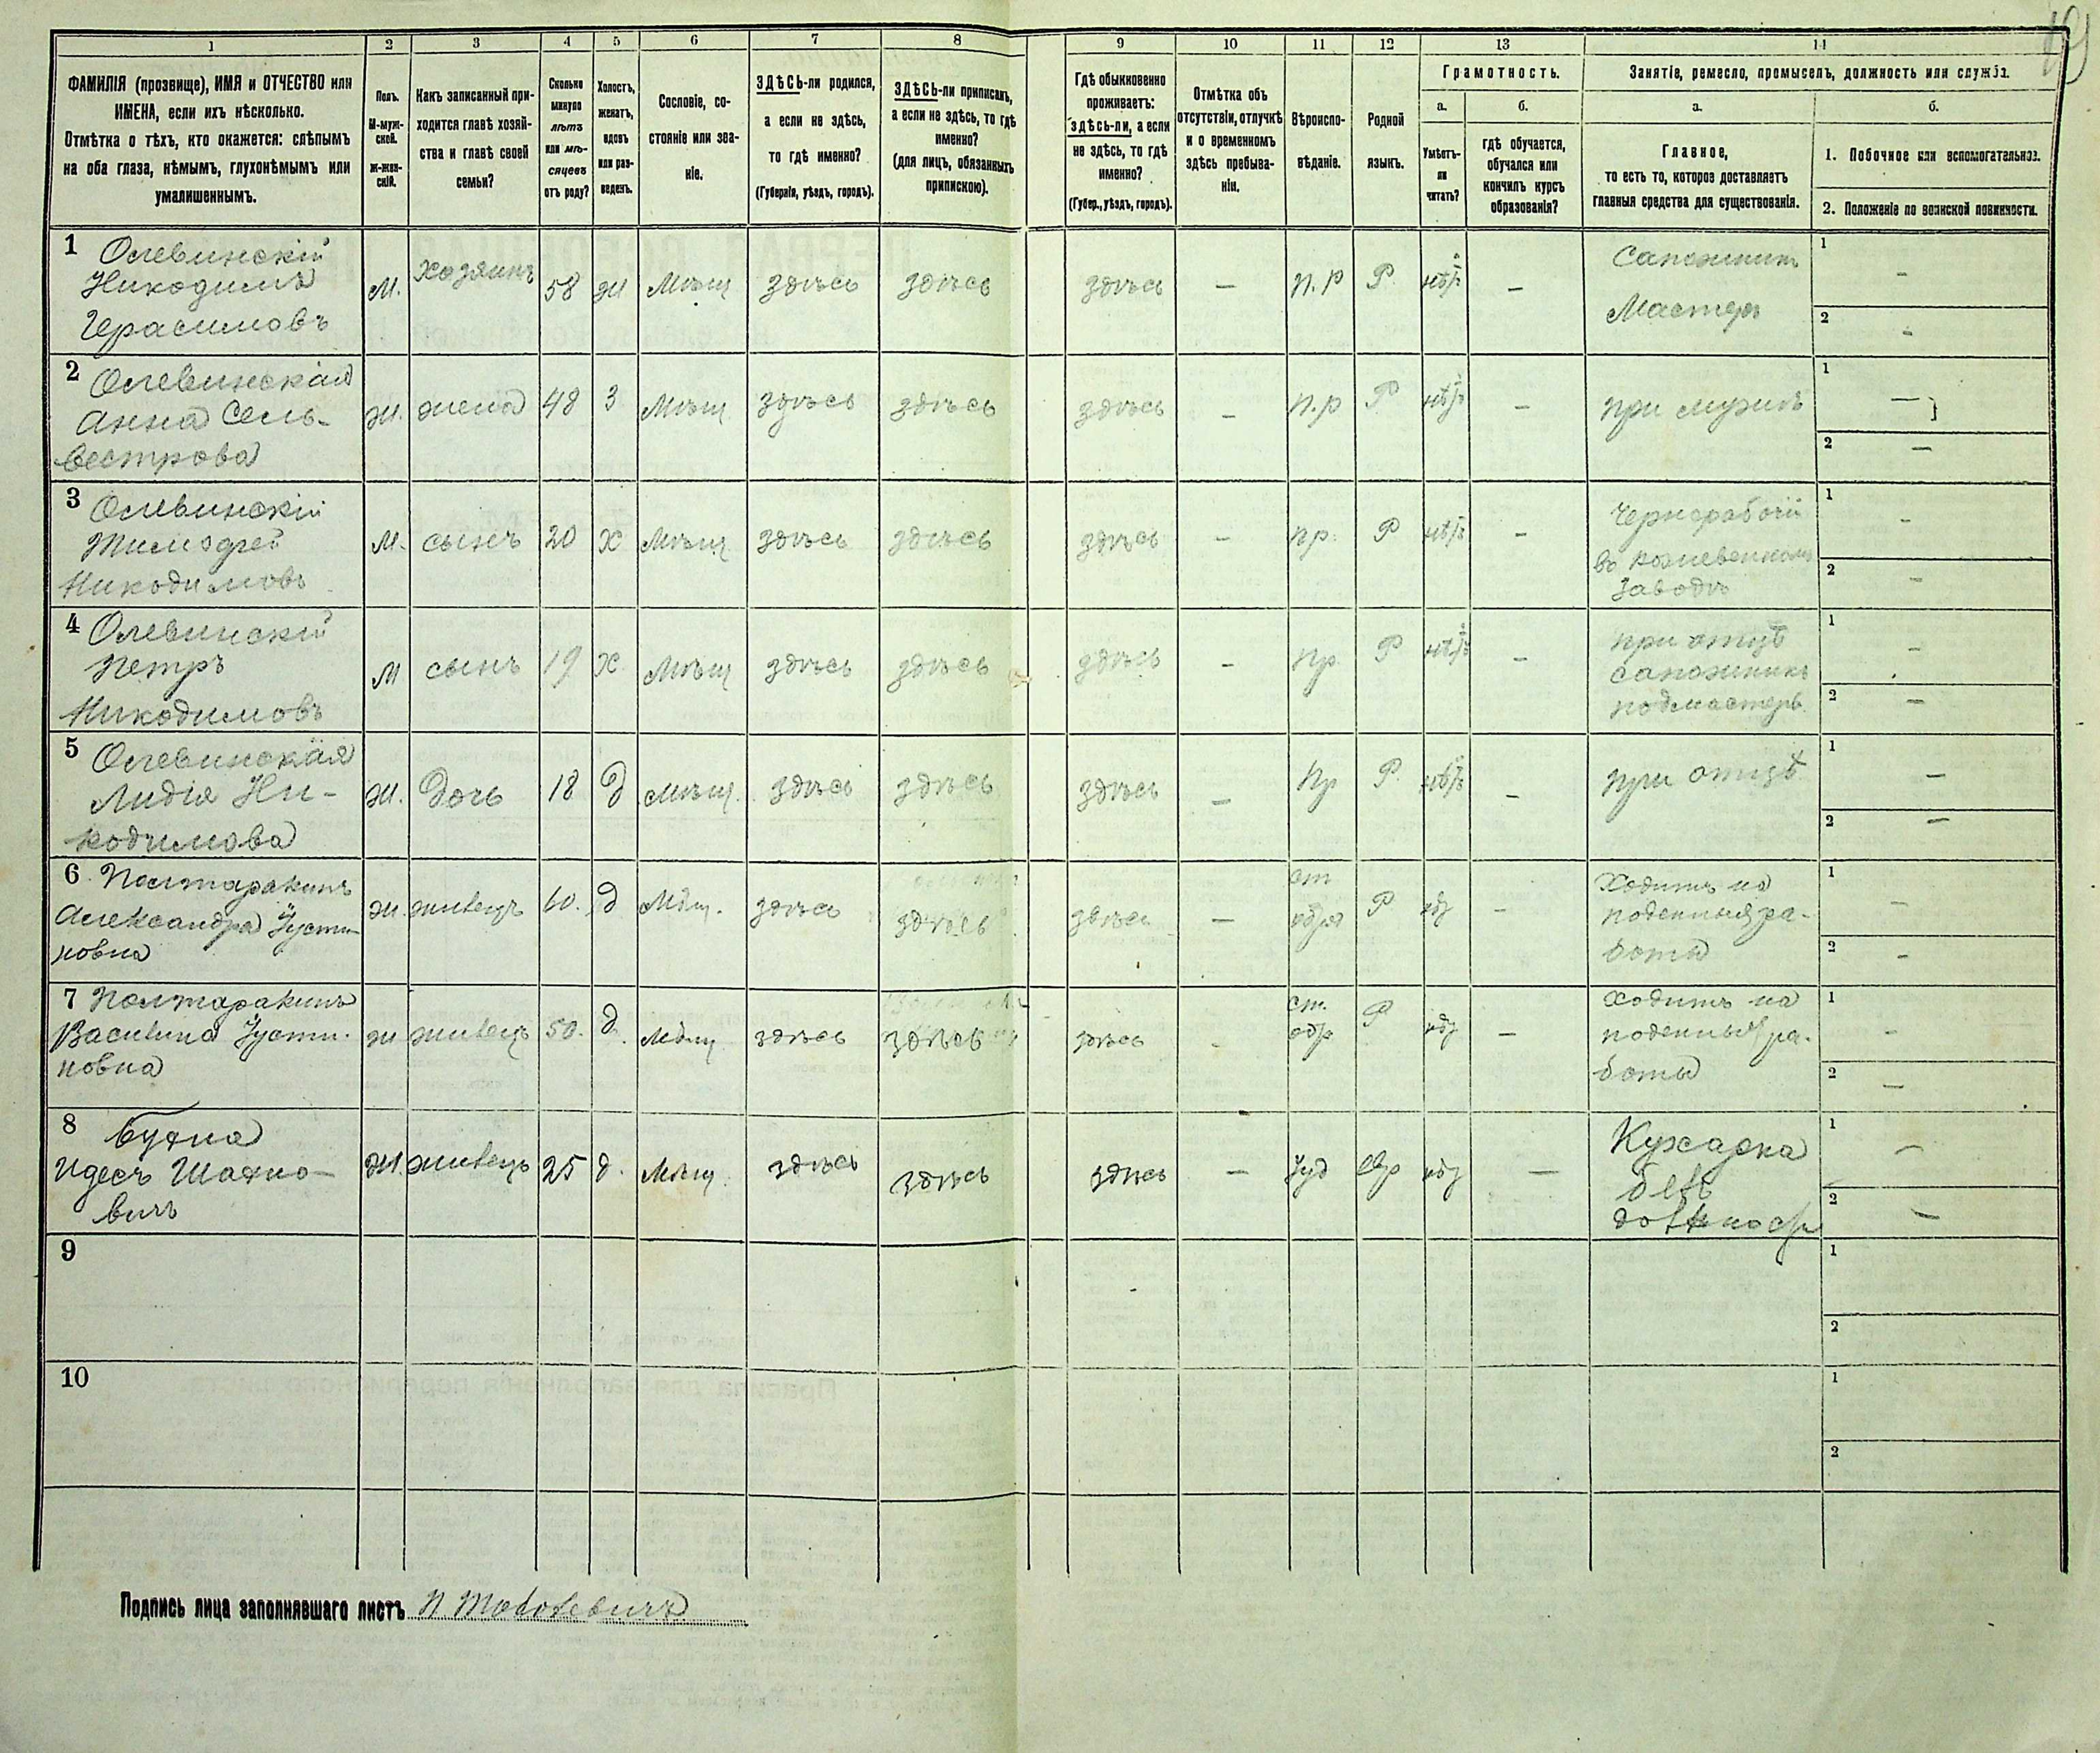 1
2
3
4
5
6
7
8
9
10
11
12
13
14
ФАМИЛІЯ (прозвище), ИМЯ и ОТЧЕСТВО или
ИМЕНА, если ихъ нѣсколько.
Отмѣтка о тѣхъ, кто окажется: слѣпымъ
на оба глаза, нѣмымъ, глухонѣмымъ или
умалишеннымъ.
Полъ.
М-муж-
ской.
Ж-жен-
скій.
Какъ записанный при-
ходится главѣ хозяй-
ства и главѣ своей
семьи?
Сколько
минуло
лѣтъ
или мѣ-
сяцевъ
отъ роду?
Холостъ,
женатъ,
вдовъ
или раз-
веденъ.
Сословіе, со-
стояніе или зва-
ніе.
ЗДѢСЬ-ли родился,
а если не здѣсь,
то гдѣ именно?
(Губернія, уѣздъ, городъ).
ЗДѢСЬ-ли приписанъ,
а если не здѣсь, то гдѣ
именно?
(для лицъ, обязанныхъ
припискою).
Гдѣ обыкновенно
проживаетъ:
здѣсь-ли, а если
не здѣсь, то гдѣ
именно?
(Губер., уѣздъ, городъ).
Отмѣтка объ
отсутствіи, отлучкѣ
и о временномъ
здѣсь пребыва-
ніи.
Вѣроиспо-
вѣданіе.
Родной
языкъ.
Грамотность.
а.
б.
Умѣетъ-
ли
читать?
гдѣ обучается,
обучался или
кончилъ курсъ
образованія?
Занятіе, ремесло, промыселъ, должность или служба.
а.
б.
Главное,
то есть то, которое доставляетъ
главныя средства для существованія.
1. Побочное или вспомогательное.
2. Положеніе по воинской повинности.
1 Олевинскій
Никодимъ
Герасимовъ
М.
хозяинъ
58
ж
Мѣщ
здѣсь
здѣсь
здѣсь
—
п.р
Р.
—
Сапожникъ
Мастеръ
1 —
2 —
2 Олевинская
Анна Сель-
вестрова
Ж.
жена
48
З
Мѣщ
здѣсь
здѣсь
здѣсь
—
п.р
Р
—
при мужѣ
1 —
2 —
3 Олевинскій
Тимофей
Никодимовъ
М.
сынъ
20
Х
Мѣщ
здѣсь
здѣсь
здѣсь
—
пр.
Р
—
Чернорабочій
въ кожевенномъ
Заводѣ
1 —
2 —
4 Олевинскій
Петръ
Никодимовъ
М
сынъ
19
Х
Мѣщ
здѣсь
здѣсь
здѣсь
—
пр.
Р
—
при отцѣ
сапожникъ
подмастерь
1 —
2 —
5 Олевинская
Лидія Ни-
кодимова
Ж.
дочь
18
д
Мѣщ.
здѣсь
здѣсь
здѣсь
—
пр
Р.
—
при отцѣ
1 —
2 —
6
Александра Іусти-
новна
Ж.
жилецъ
60.
д
Мѣщ.
здѣсь
здѣсь
здѣсь
—
ст
обря
Р
—
Ходитъ на
поденныя ра-
боты
1 —
2 —
7
Василина Іусти-
новна
ж
жилецъ
50.
д.
Мѣщ
здѣсь
здѣсь
здѣсь
ст.
обр
Р
—
Ходитъ на
поденныя ра-
боты
1 —
2 —
8
Идесъ Шахно-
вичъ
Ж.
жилецъ
25
д.
Мѣщ.
здѣсь
здѣсь
здѣсь
—
Іуд
Евр
—
Кухарка
безъ
1 —
2 —
9
1
2
10
1
2
Подпись лица заполнявшаго листъ